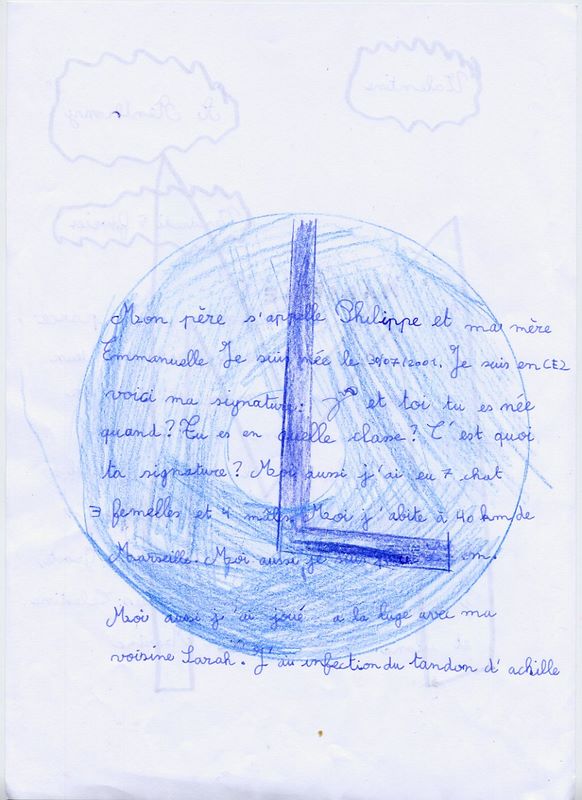 Mon père s'appelle Philippe et ma mère
Emmanuelle Je suis née le 30/07/2001. Je suis en CE2
voici ma signature: et toi tu es née
quand? Tu es en quelle classe? C'est quoi
ta signature? Moi aussi j'ai eu 7 chat
3 femelles et 4 mâles. Moi j'abite à 40 km de
Marseille. Moi aussi je suis
Moi aussi j'ai joué a la luge avec ma
voisine Sarah. J'ai infection du tandon d'achille
Valentine